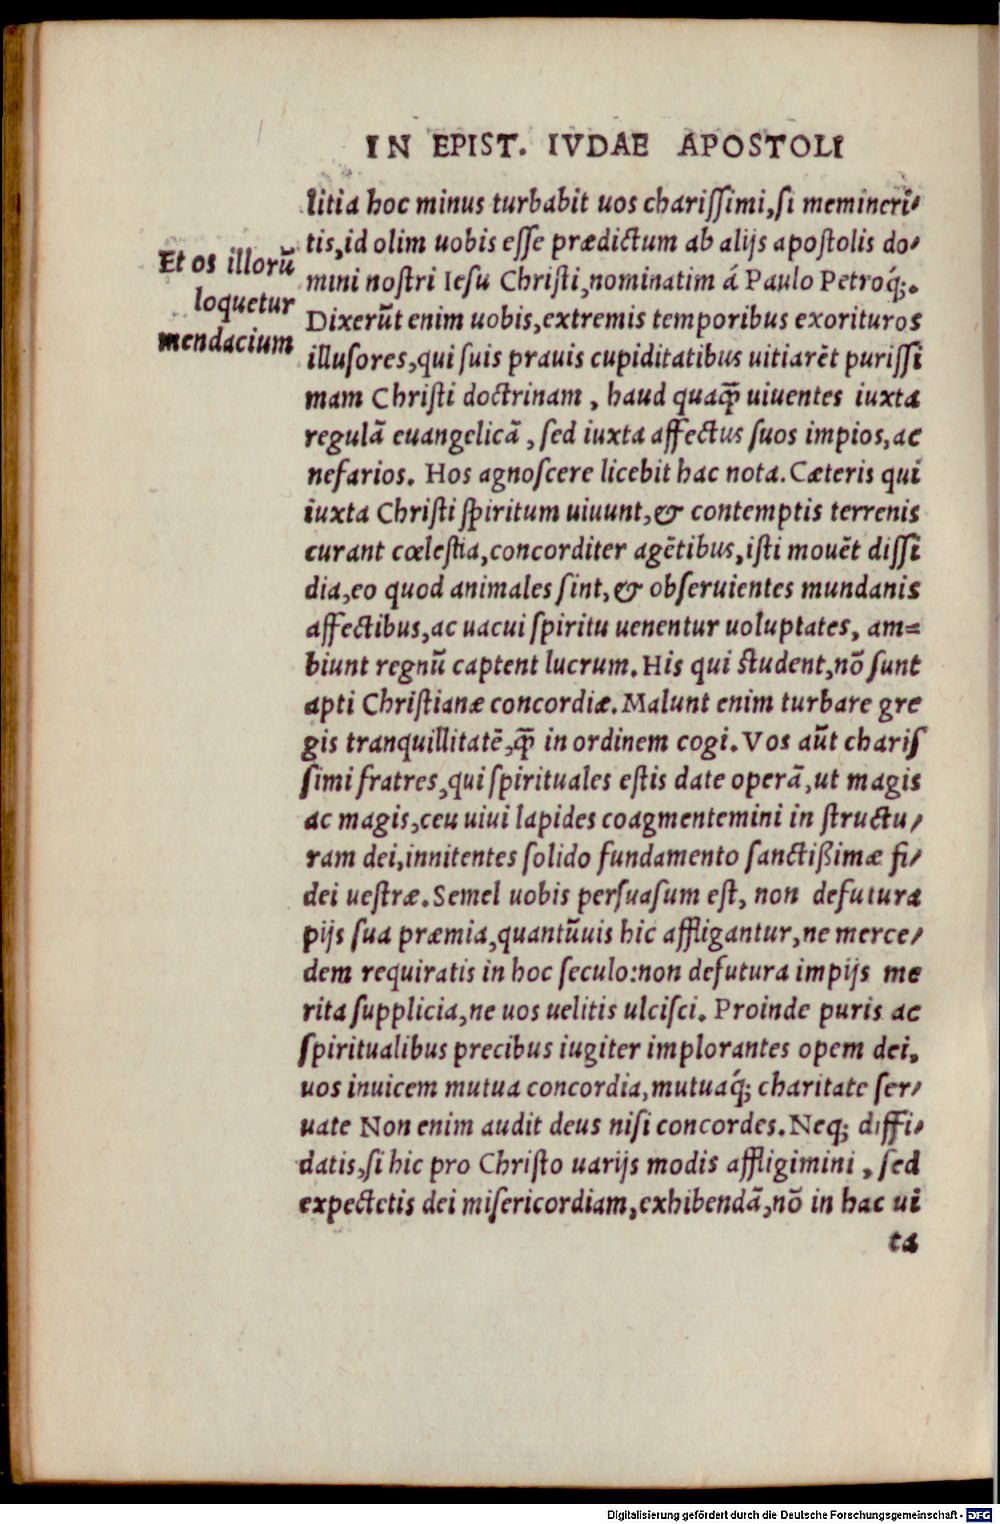 IN EPIST. IVDAE APOSTOLI
litia hoc minus turbabit uos charissimi, si memineri⸗
tis, id olim uobis esse prædictum ab alijs apostolis do⸗
mini nostri Iesu Christi, nominatim á Paulo Petroq́;.
Et os illorũ
loquetur
mendacium
Dixerũt enim uobis, extremis temporibus exorituros
illusores, qui suis prauis cupiditatibus uitiarẽt purissi
mam Christi doctrinam, haud quaq̃ uiuentes iuxta
regulã euangelicã, sed iuxta affectus suos impios, ac
nefarios. Hos agnoscere licebit hac nota. Cæteris qui
iuxta Christi spiritum uiuunt, & contemptis terrenis
curant cœlestia, concorditer agẽtibus, isti mouẽt dissi
dia, eo quod animales sint, & obseruientes mundanis
affectibus, ac uacui spiritu uenentur uoluptates, am⸗
biunt regnũ captent lucrum. His qui student, nõ sunt
apti Christianæ concordiæ. Malunt enim turbare gre
gis tranquillitatẽ, q̃ in ordinem cogi. Vos aũt charis
simi fratres, qui spirituales estis date operã, ut magis
ac magis, ceu uiui lapides coagmentemini in structu⸗
ram dei, innitentes solido fundamento sanctißimæ fi⸗
dei uestræ. Semel uobis persuasum est, non defutura
pijs sua præmia, quantũuis hic affligantur, ne merce⸗
dem requiratis in hoc seculo: non defutura impijs me
rita supplicia, ne uos uelitis ulcisci. Proinde puris ac
spiritualibus precibus iugiter implorantes opem dei,
uos inuicem mutua concordia, mutuaq́; charitate ser⸗
uate Non enim audit deus nisi concordes. Neq; diffi⸗
datis, si hic pro Christo uarijs modis affligimini, sed
expectetis dei misericordiam, exhibendã, nõ in hac ui
ta
Digitalisierung gefördert durch die Deutsche Forschungsgemeinschaft - DFG